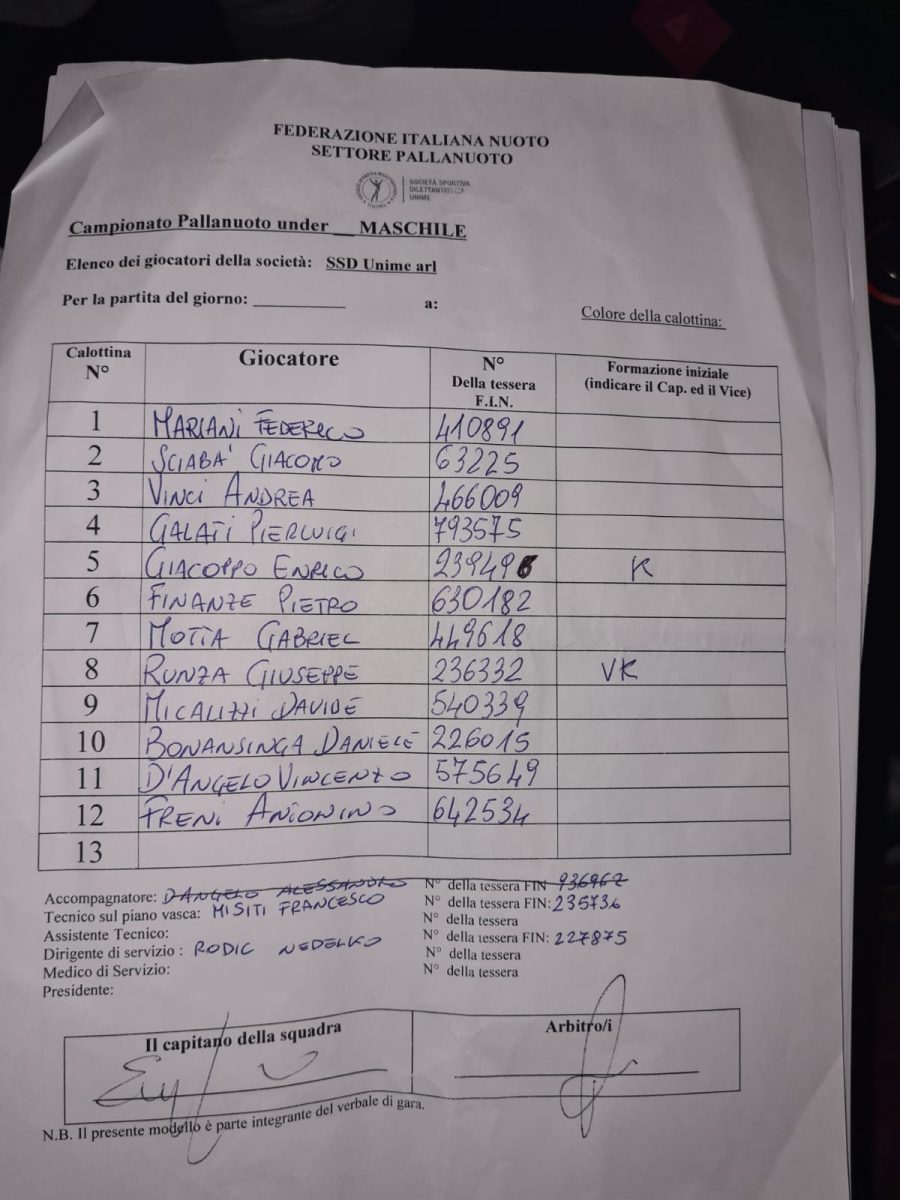 FEDERAZIONE ITALIANA NUOTO
SETTORE PALLANUOTO
SOCIETÀ SPORTIVA
DILETTANTISTICA
UNIME
Campionato Pallanuoto under __ MASCHILE
Elenco dei giocatori della società: SSD Unime arl
Per la partita del giorno: ____________ a: Colore della calottina:
Calottina N° Giocatore N° Della tessera F.I.N. Formazione iniziale (indicare il Cap. ed il Vice)
1 MARIANI FEDERICO 410891
2 SCIABA' GIACOMO 63225
3 VINCI ANDREA 466009
4 GALATI PIERLUIGI 793575
5 GIACOPPO ENRICO 239496 K
6 FINANZE PIETRO 630182
7 MOTTA GABRIEL 449618
8 RUNZA GIUSEPPE 236332 VK
9 MICALIZZI DAVIDE 540339
10 BONANSINGA DANIELE 226015
11 D'ANGELO VINCENZO 575649
12 FRENI ANTONINO 642534
13
Accompagnatore: D'ANGELO ALESSANDRO N° della tessera FIN 936962
Tecnico sul piano vasca: MISITI FRANCESCO N° della tessera FIN: 235736
Assistente Tecnico: N° della tessera
Dirigente di servizio : RODIC NEDELKO N° della tessera FIN: 227875
Medico di Servizio: N° della tessera
Presidente: N° della tessera
Il capitano della squadra Arbitro/i
N.B. Il presente modello è parte integrante del verbale di gara.